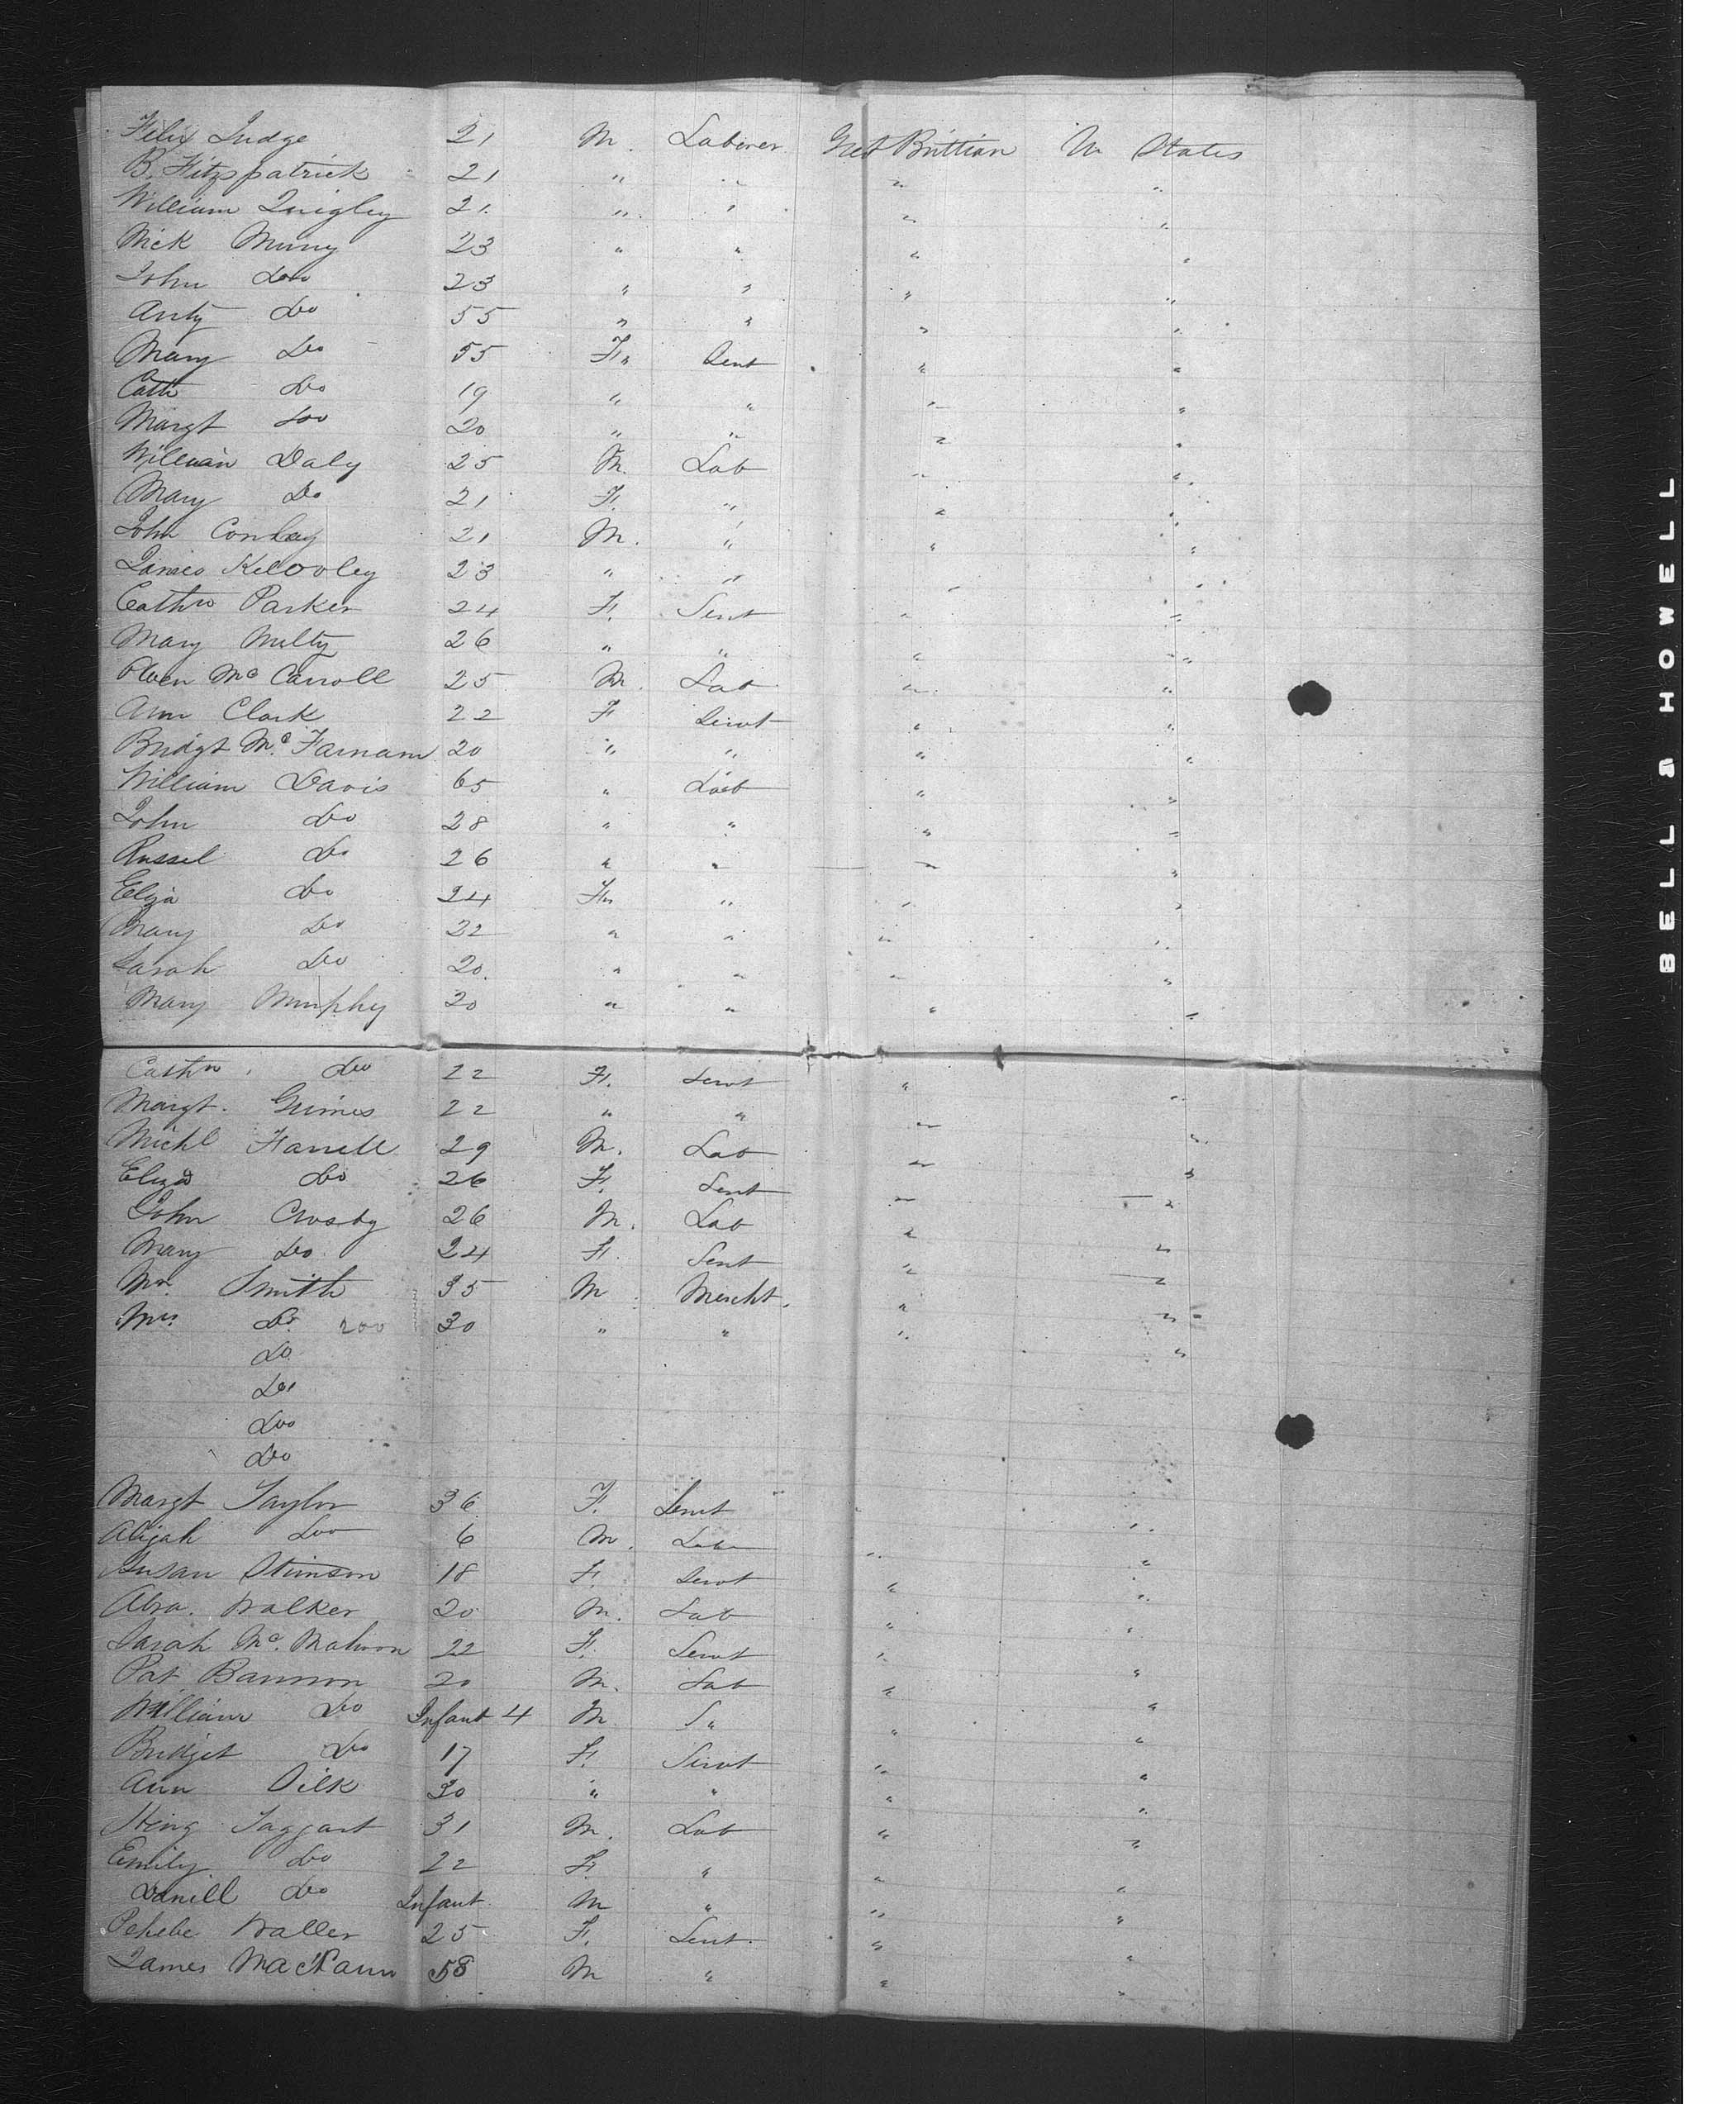 Felix Judge 21 M. Laborer Gret Brittian U States
B. Fitzpatrick 21 " " " "
William Quigley 21 " " " "
Mick Murry 23 " " " "
John Do 23 " " " "
Anty Do 55 " " " "
Mary Do 55 F. Sert " "
Cath Do 19 " " " "
Margt Do 20 " " " "
William Daly 25 M. Lab " "
Mary Do 21 F. " " "
John Conley 21 M. " " "
James 23 " " " "
Cathn Parker 24 F. Sert " "
Mary 26 " " " "
Owen Mc Carroll 25 M. Lab " "
Ann Clark 22 F Servt " "
Bridgt Mc. Farnam 20 " " " "
William Davis 65 " Lab " "
John Do 28 " " " "
Russel Do 26 " " " "
Eliza Do 24 F " " "
Mary Do 22 " " " "
Sarah Do 20 " " " "
Mary Murphy 20 " " " "
Cathn Do 22 F. Servt " "
Margt. Grimes 22 " " " "
Michl Farrell 29 M. Lab " "
Eliza Do 26 F. Sert " "
John Crosby 26 M. Lab " "
Mary Do 24 F. Sert " "
Mr. Smith 35 M Mercht. " "
Mrs. Do 200 30 " " " "
Do
Do
Do
Do
Margt Taylor 36 F. Servt "
Alijah Do 6 M. Lab " "
Susan Stimson 18 F. Servt " "
Abra. Walker 20 M. Lab " "
Sarah Mc. Mahon 22 F. Servt " "
Pat Bannon 20 M. Lab " "
William Do Infant 4 M. " " "
Bridget Do 17 F. Servt " "
Ann Dilk 30 " " " "
Henry Taggart 31 M. Lab " "
Emily Do 22 F. " " "
Daniell Do Infant M " " "
Pehebe Waller 25 F. Sert. " "
James 58 M " " "
BELL & HOWELL